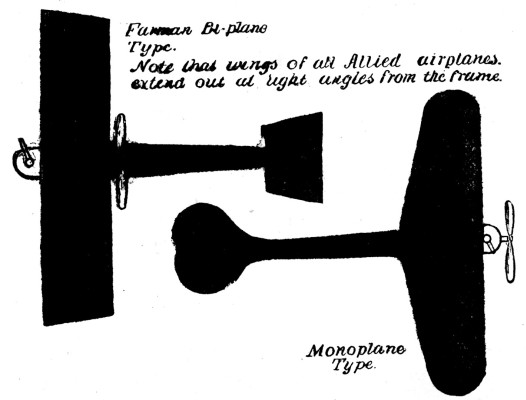 Farman Bi-plane
Type.
Note that wings of all Allied airplanes.
extend out at right angles from the frame.
Monoplane
Type.